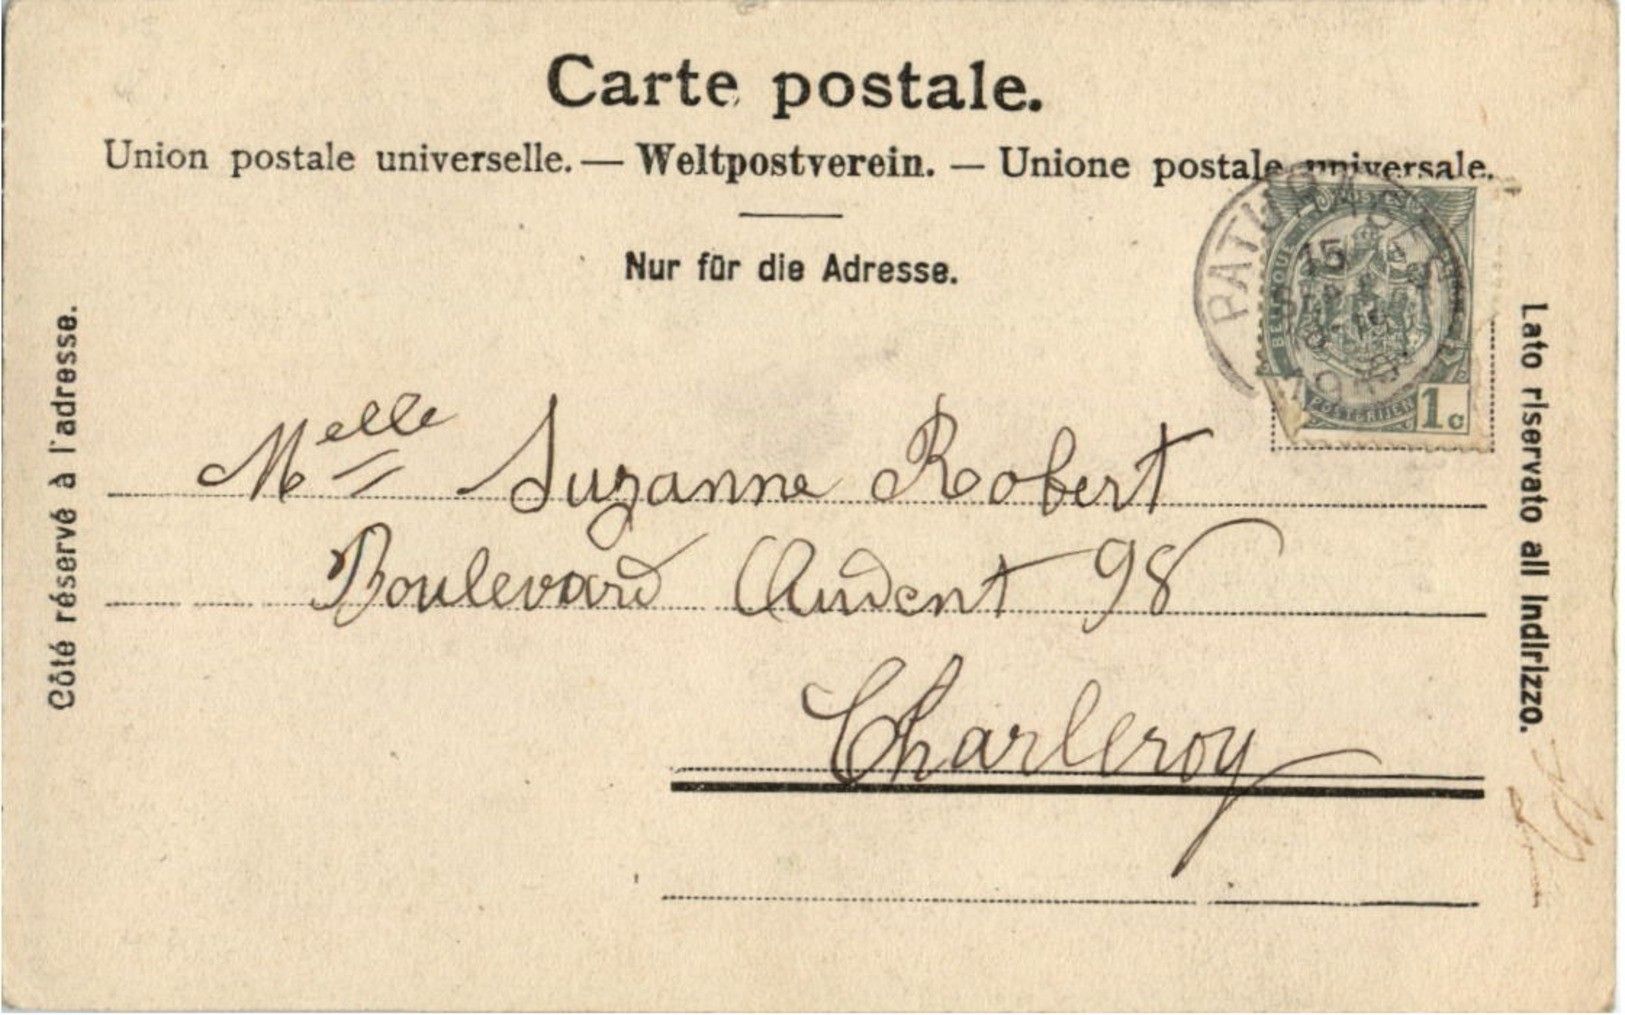 Carte postale.
Union postale universelle. — Weltpostverein. — Unione postale universale.
Nur für die Adresse.
Côté réservé à l'adresse.
Lato riservato all Indirizzo.
PATURAGES
15
BELGIQUE
POSTERIJEN
1c
Melle Suzanne Robert
Boulevard Audent 98
Charleroy